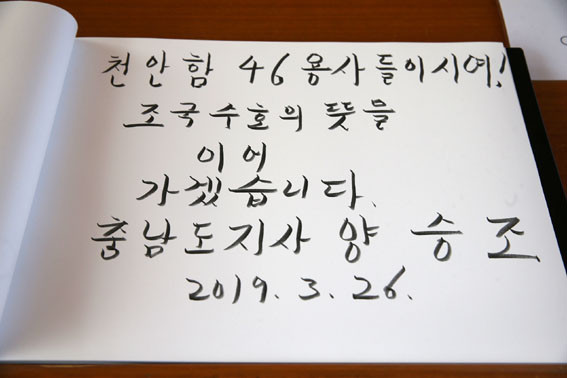 천안함 46용사들이시여!
조국수호의 뜻을
이어
가겠습니다.
충남도지사 양승조
2019. 3. 26.